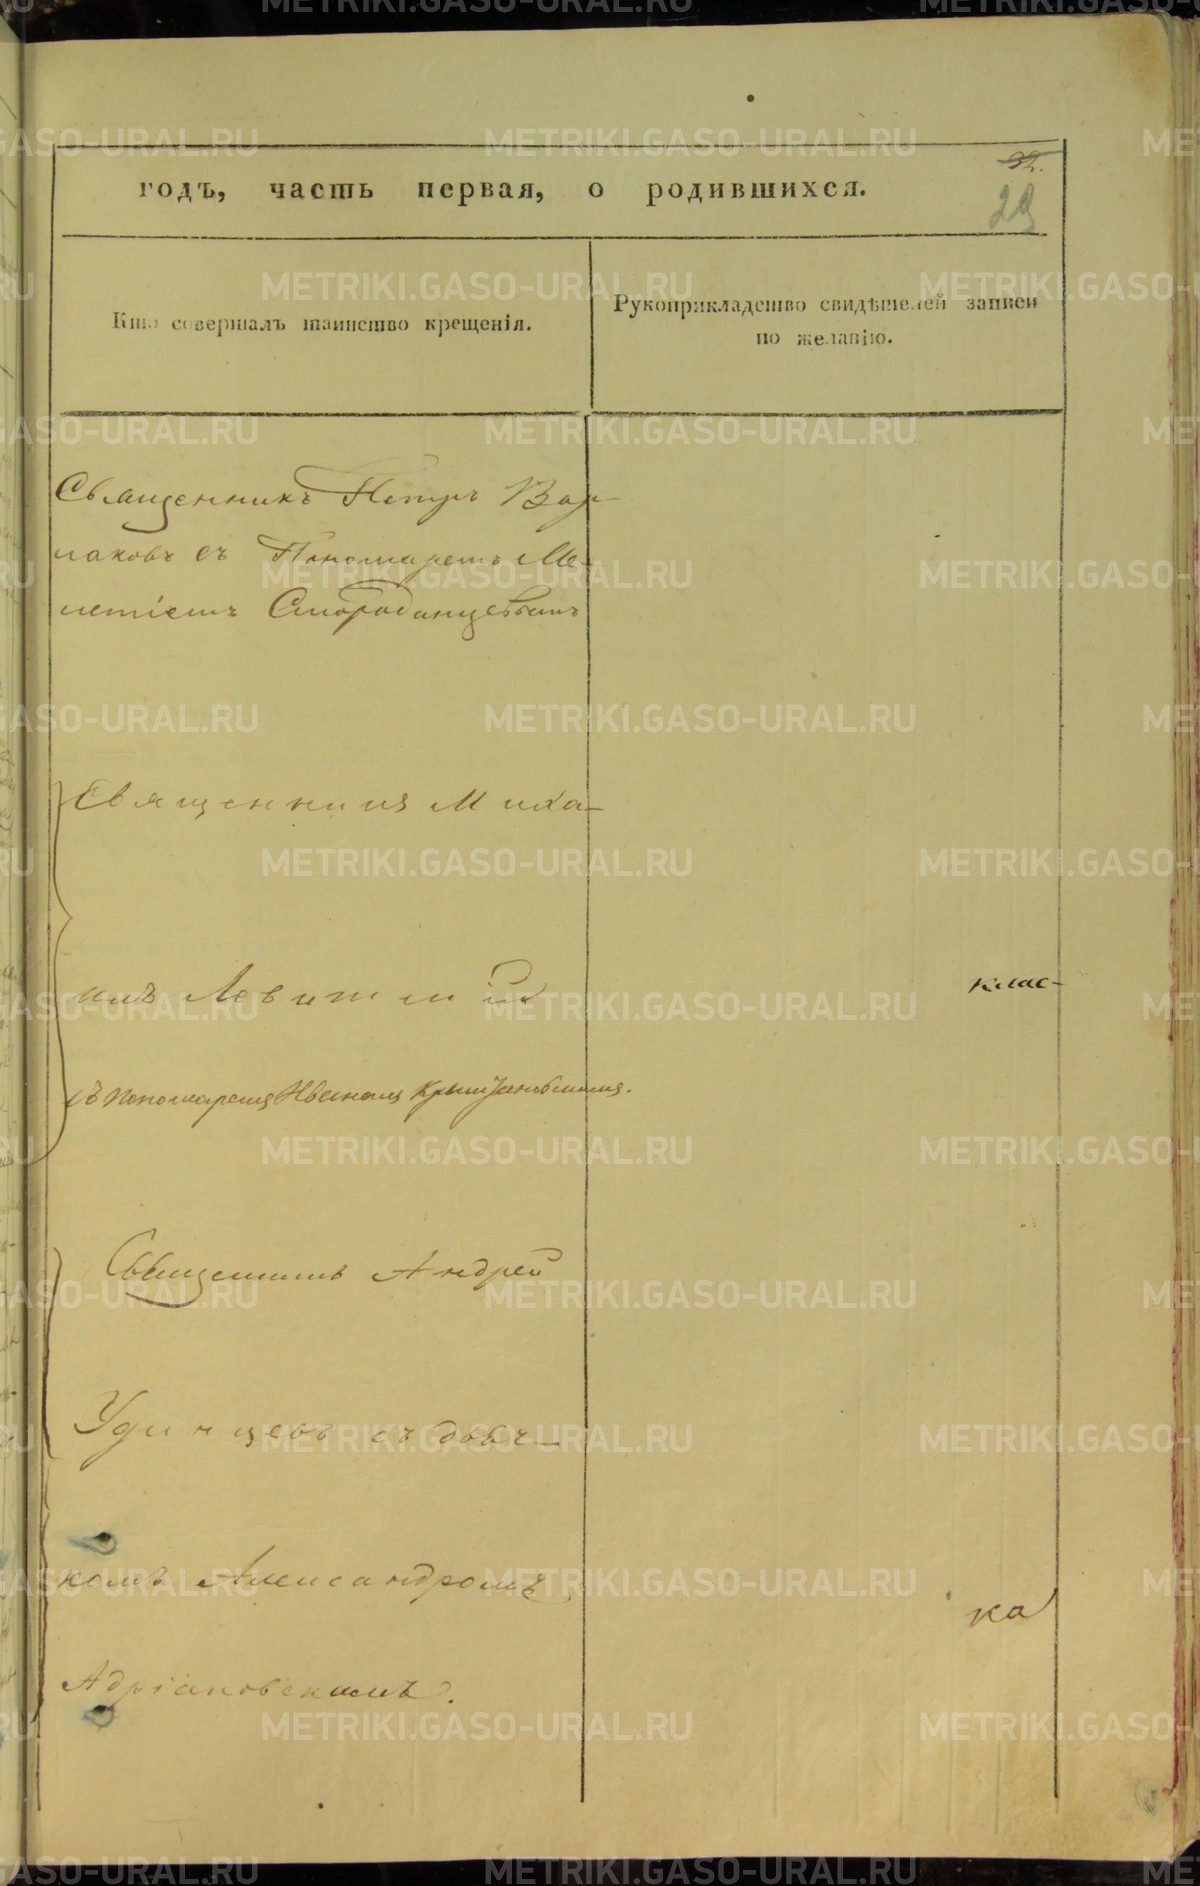 32.
годъ, часть первая, о родившихся.
29
Кто совершалъ таинство крещенія.
Рукоприкладство свидѣтелей записи
по желанію.
Священникъ Петръ Вар-
лаковъ съ Пономаремъ Ме-
летіемъ Смородинцевымъ
Священникъ Миха-
илъ Левитскій
клас-
съ Пономаремъ Иваномъ
Священникъ Андрей
Удинцевъ съ дьяч-
комъ Александромъ
ка
Адріановскимъ.
METRIKI.GASO-URAL.RU